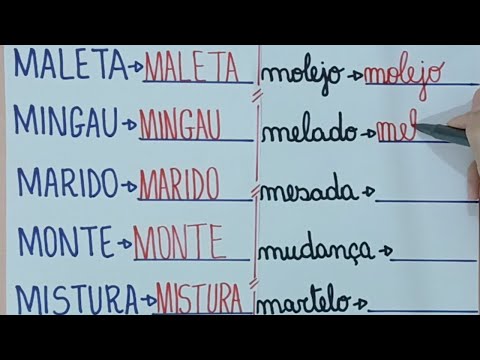 MALETA→MALETA molejo→molejo
MINGAU→MINGAU melado→mel
MARIDO→MARIDO mesada→
MONTE→MONTE mudança→
MISTURA→MISTURA martelo→